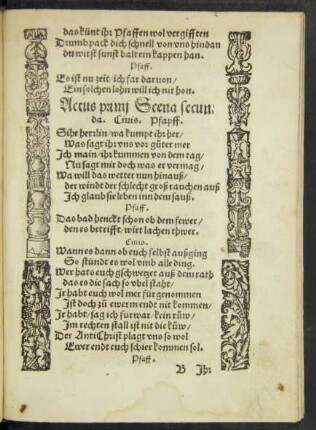 das künt ihr Pfaffen wol vergifften
Drumb pack dich schnell von vns hindan
du wirst sunst balt ein kappen han.
Pfaff.
Es ist nu zeit ich far daruon/
Ein solchen lohn will ich nit hon.
Actus primi Scena secun-
da. Ciuis. Pfapff.
Sihe herrlin/wa kumpt ihr her/
Was sagt ihr vns vor güter mer
Ich main/ihr kummen von dem tag/
Nu sagt mir doch was er vermag/
Wa will das wetter nun hinauß/
der windt der schlecht groß rauchen auß
Ich glaub sie leben inn dem sauß.
Pfaff.
Das bad henckt schon ob dem fewer/
den es betrifft/wirt lachen thwer.
Ciuis.
Wann es dann ob euch selbst außging
So stündt es wol vmb alle ding.
Wer hats euch gschwetzet auß dem rath
das es die sach so vbel staht/
Ir habt euch wol mer fürgenommen
Ist doch zů ewerm endt nit kommen/
Ir habt/sag ich fürwar/kein rüw/
Im rechten stall ist nit die küw/
Der AntiChrist plagt vns so wol
Ewer endt euch schier kommen sol.
Pfaff.
B Ihr